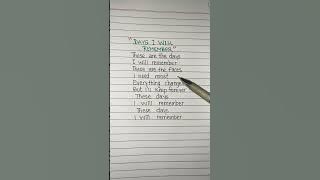 "DAYS I WILL
REMEMBER"
These are the days
I will remember
These are the Faces
I need most
Everything change
But I'll Keep forever
These days
I will remember
These days
I will remember